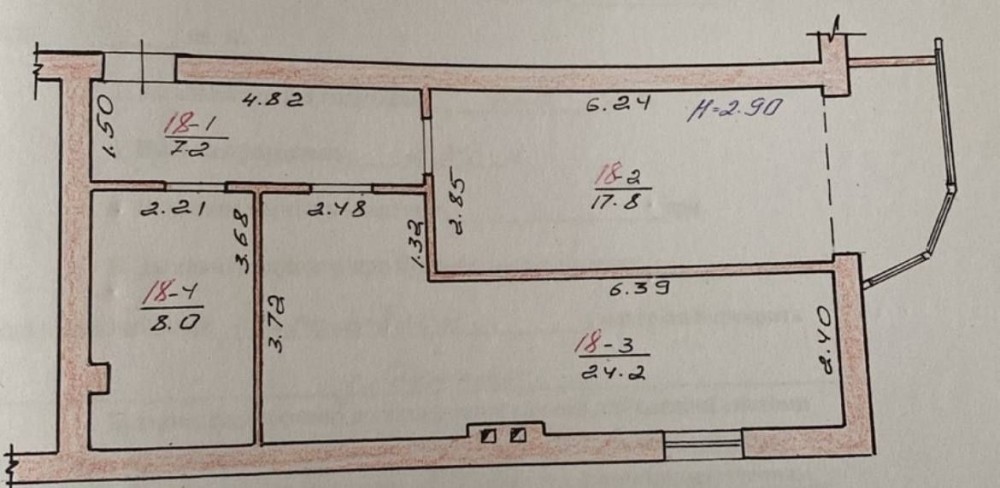 4.82
6.24
H=2.90
1.50
18-1
7.2
18-2
17.8
2.85
2.21
2.48
3.68
1.32
18-4
8.0
3.72
6.39
18-3
24.2
2.40